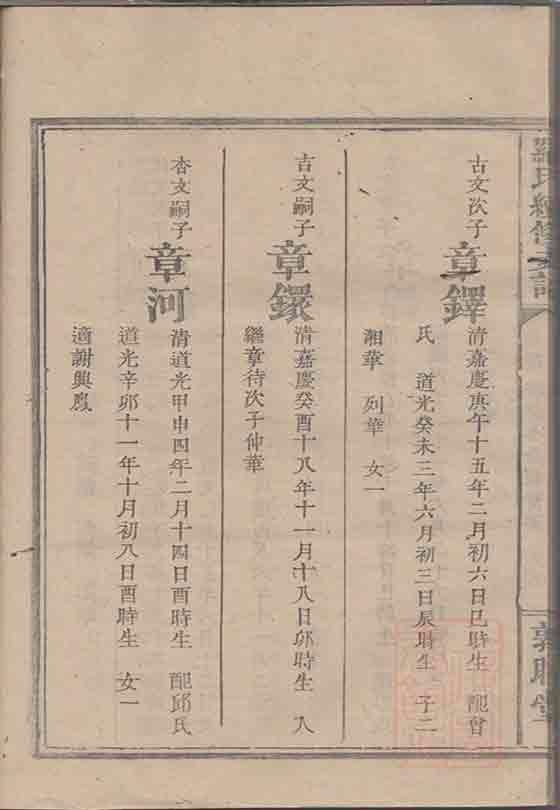 羅氏續修
敦睦堂
古文次子
章鐸
清嘉慶庚午十五年二月初六日巳時生 配曾
氏 道光癸未三年六月初三日辰時生 子二
湘華 列華 女一
吉文嗣子
章鐶
清嘉慶癸酉十八年十一月十八日卯時生 入
繼章待次子仲華
杏文嗣子
章河
清道光甲申四年二月十四日酉時生 配邱氏
道光辛卯十一年十月初八日酉時生 女一
適謝興鳳